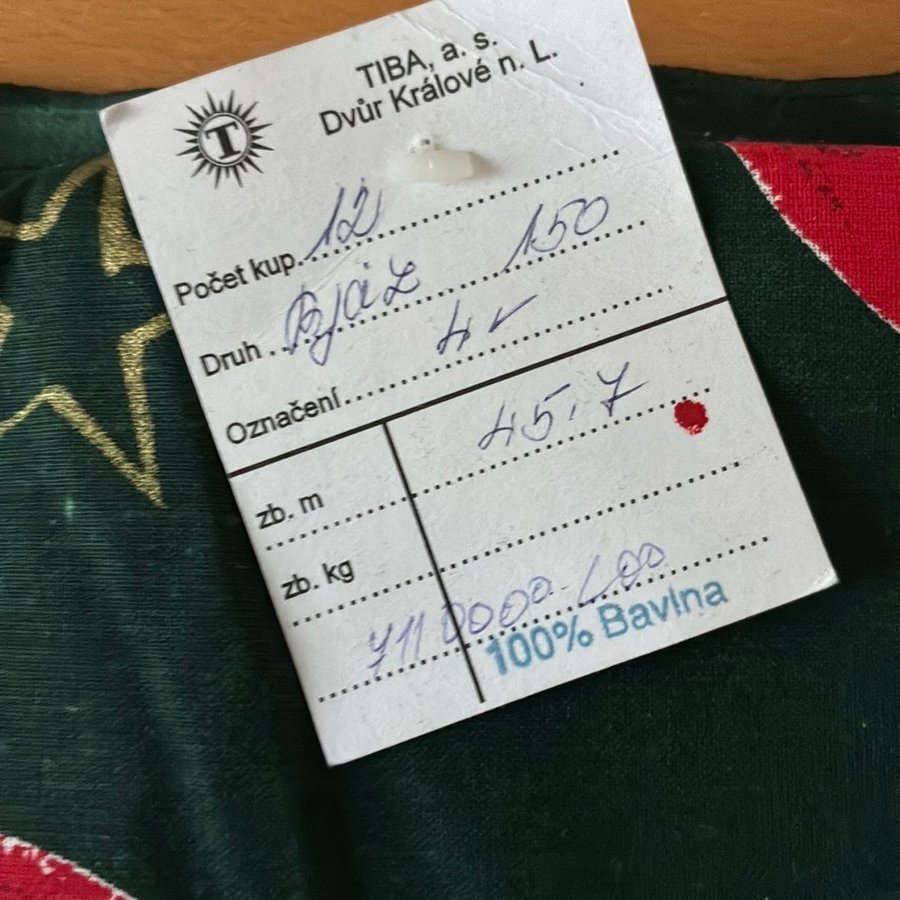 T
TIBA, a. s.
Dvůr Králové n. L.
Počet kup. 12
Druh Bjáz 150
Označení
zb. m 45.7
zb. kg
100% Bavlna